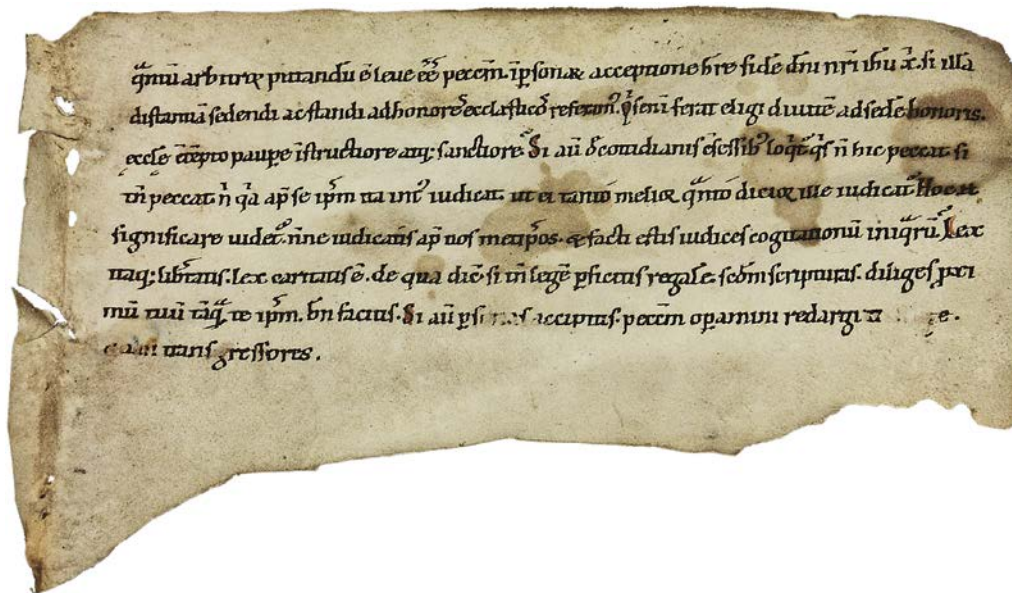 qᷓntū arbitror putandū ē leue eē̄ peccm̄ īpersonaꝝ acceptione hr̄e fidē dn̄i nr̄i ihū x̄. si illā
distantiā sedendi ac standi ad honorē ecclasticos referam᷒. qͥs enī ferat eligi diuitē ad sedē honoris.
eccl̄e ꝯtēpto paupe īstructiore atq; sanctiore. Si aū de cotidianis ꝯsessib᷒ loqt᷒ qͥs n̄ hic peccat si
tn̄ peccat. n̄ qͥa ap̄ se ip̄m ita int᷒ iudicat ut ei tanto melior qᷓnto ditior ille iudicat᷒. Hoc et
significare uidet᷒. n̄ne iudicatis ap̄ nos metip̄os. & facti estis iudices cogitationū iniqͣrū. Lex
itaq; lib̄tatis. lex caritatis ē. de qua dic̄ si tn̄ legē ꝑficitis regalē. scdm̄ scripturas. diliges ꝓxi
mū tuū tāqͣ te ip̄m. bn̄ facitis. Si aū ꝑso accipitis. peccm̄ oꝑamini redarguti
transgressores.